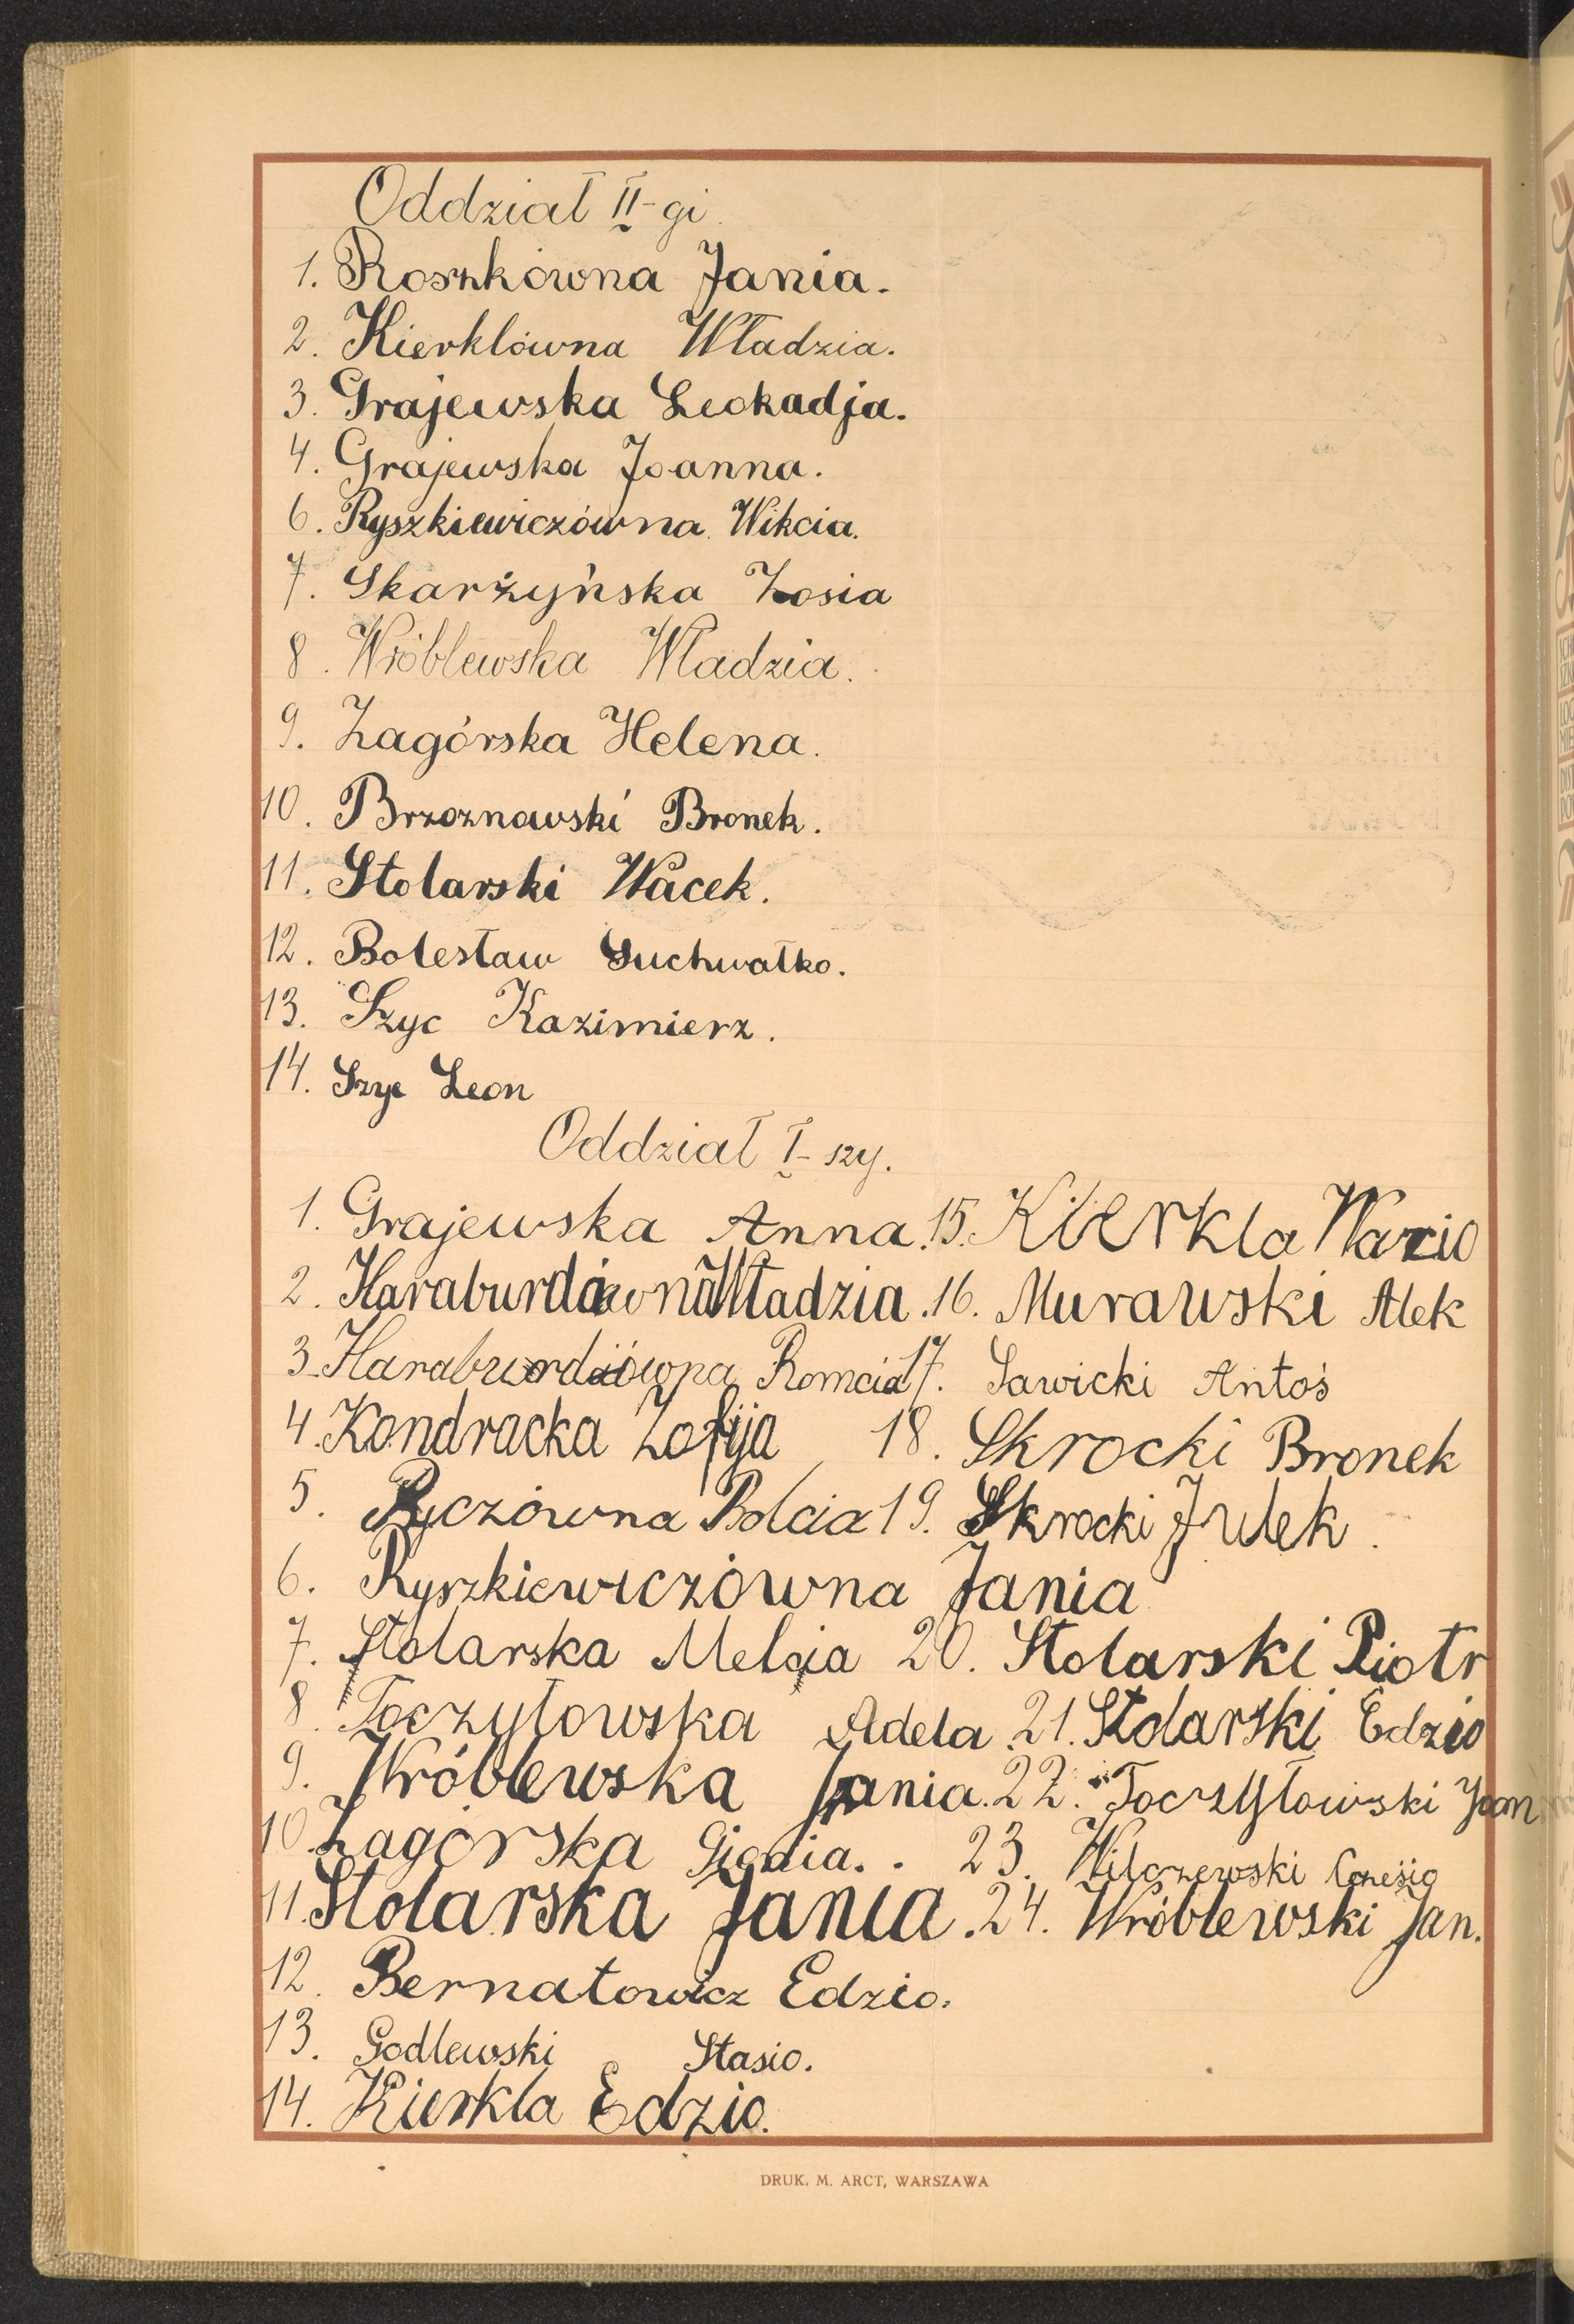 Oddział II-gi
1. Roszkówna Jania.
2. Kierklówna Władzia.
3. Grajewska Leokadja.
4. Grajewska Joanna.
6. Ryszkiewiczówna Wikcia.
7. Skarżyńska Zosia
8. Wróblewska Władzia.
9. Zagórska Helena.
10. Brzoznowski Bronek.
11. Stolarski Wacek.
12. Bolesław Suchwałko.
13. Szyc Kazimierz.
14. Szyc Leon
Oddział I-szy.
1. Grajewska Anna. 15. Kierkla Wacio
2. Haraburdówna Władzia. 16. Murawski Alek
3. Haraburdówna Romcia 17. Sawicki Antoś
4. Kondracka Zofija 18. Skrocki Bronek
5. Ryczówna Polcia 19. Skrocki Julek.
6. Ryszkiewiczówna Jania
7. Stolarska Melcia 20. Stolarski Piotr
8. Toczyłowska Adela 21. Stolarski Edzio
9. Wróblewska Jania. 22. Toczyłowski Jan
10. Zagórska Gienia. . 23. Wilczewski Czesio
11. Stolarska Jania. 24. Wróblewski Jan.
12. Bernatowicz Edzio.
13. Godlewski Stasio.
14. Kierkla Edzio.
DRUK. M. ARCT, WARSZAWA